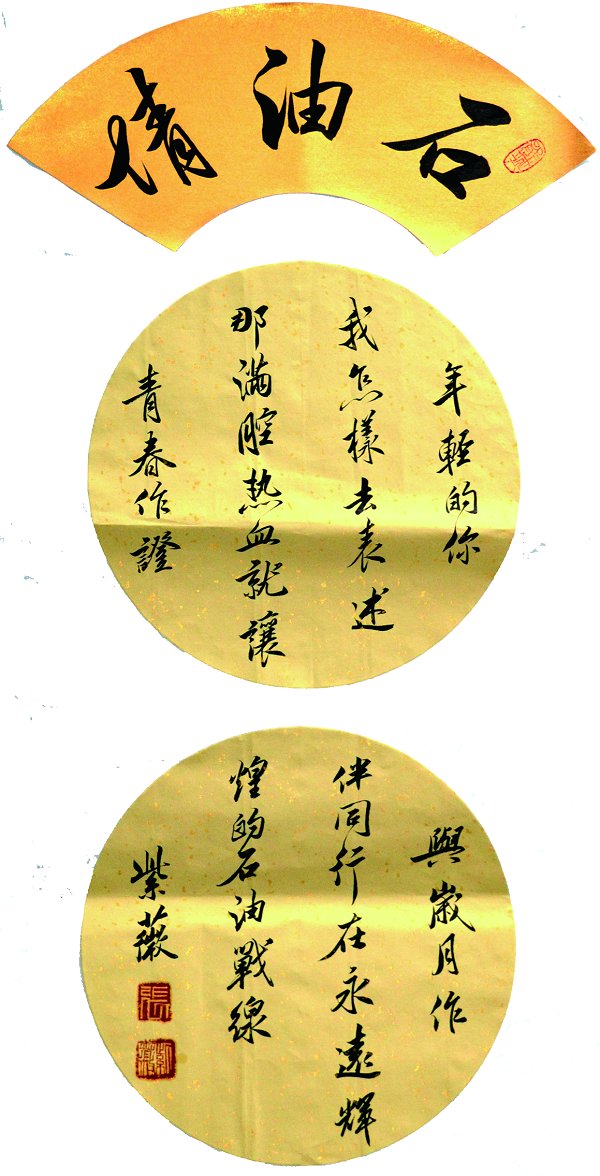 石油情
年輕的你
我怎樣去表述
那滿腔热血就讓
青春作證
與歲月作
伴同行在永遠輝
煌的石油戰線
紫薇